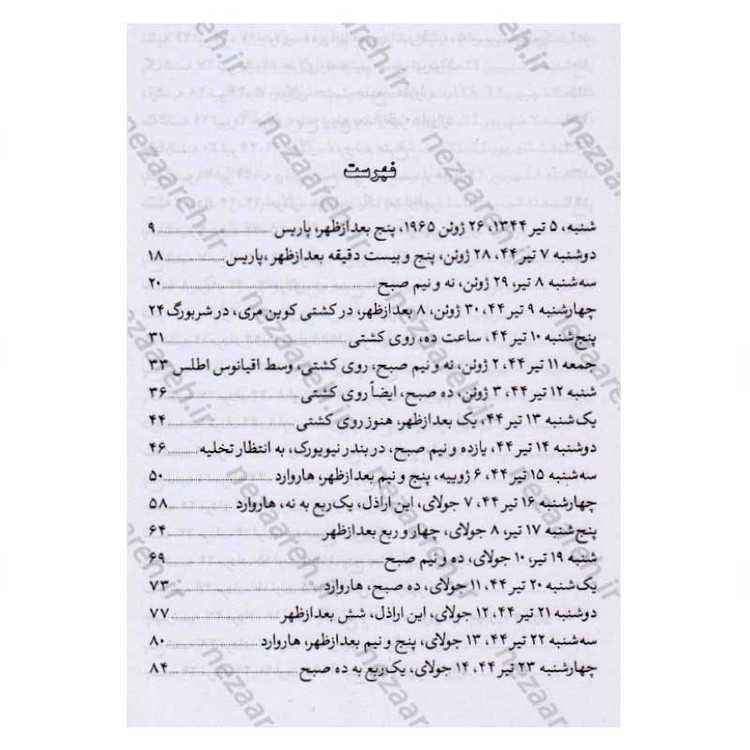 فهرست
شنبه، ۵ تیر ۱۳۴۴، ۲۶ ژوئن ۱۹۶۵، پنج بعدازظهر، پاریس ۹
دوشنبه ۷ تیر ۴۴، ۲۸ ژوئن، پنج و بیست دقیقه بعدازظهر، پاریس ۱۸
سه‌شنبه ۸ تیر، ۲۹ ژوئن، نه و نیم صبح ۲۰
چهارشنبه ۹ تیر ۴۴، ۳۰ ژوئن، ۸ بعدازظهر، در کشتی کوین مری، در شربورگ ۲۴
پنج‌شنبه ۱۰ تیر ۴۴، ساعت ده، روی کشتی ۳۱
جمعه ۱۱ تیر ۴۴، ۲ ژوئن، نه و نیم صبح، روی کشتی، وسط اقیانوس اطلس ۳۳
شنبه ۱۲ تیر ۴۴، ۳ ژوئن، ده صبح، ایضاً روی کشتی ۳۶
یک‌شنبه ۱۳ تیر ۴۴، یک بعدازظهر، هنوز روی کشتی ۴۴
دوشنبه ۱۴ تیر ۴۴، یازده و نیم صبح، در بندر نیویورک، به انتظار تخلیه ۴۶
سه‌شنبه ۱۵ تیر ۴۴، ۶ ژوییه، پنج و نیم بعدازظهر، هاروارد ۵۰
چهارشنبه ۱۶ تیر ۴۴، ۷ جولای، این اراذل، یک‌ربع به نه، هاروارد ۵۸
پنج‌شنبه ۱۷ تیر، ۸ جولای، چهار و ربع بعدازظهر ۶۴
شنبه ۱۹ تیر، ۱۰ جولای، ده و نیم صبح ۶۹
یک‌شنبه ۲۰ تیر ۴۴، ۱۱ جولای، ده صبح، هاروارد ۷۳
دوشنبه ۲۱ تیر ۴۴، ۱۲ جولای، این اراذل، شش بعدازظهر ۷۷
سه‌شنبه ۲۲ تیر ۴۴، ۱۳ جولای، پنج و نیم بعدازظهر، هاروارد ۸۰
چهارشنبه ۲۳ تیر ۴۴، ۱۴ جولای، یک‌ربع به ده صبح ۸۴
nezaareh.ir